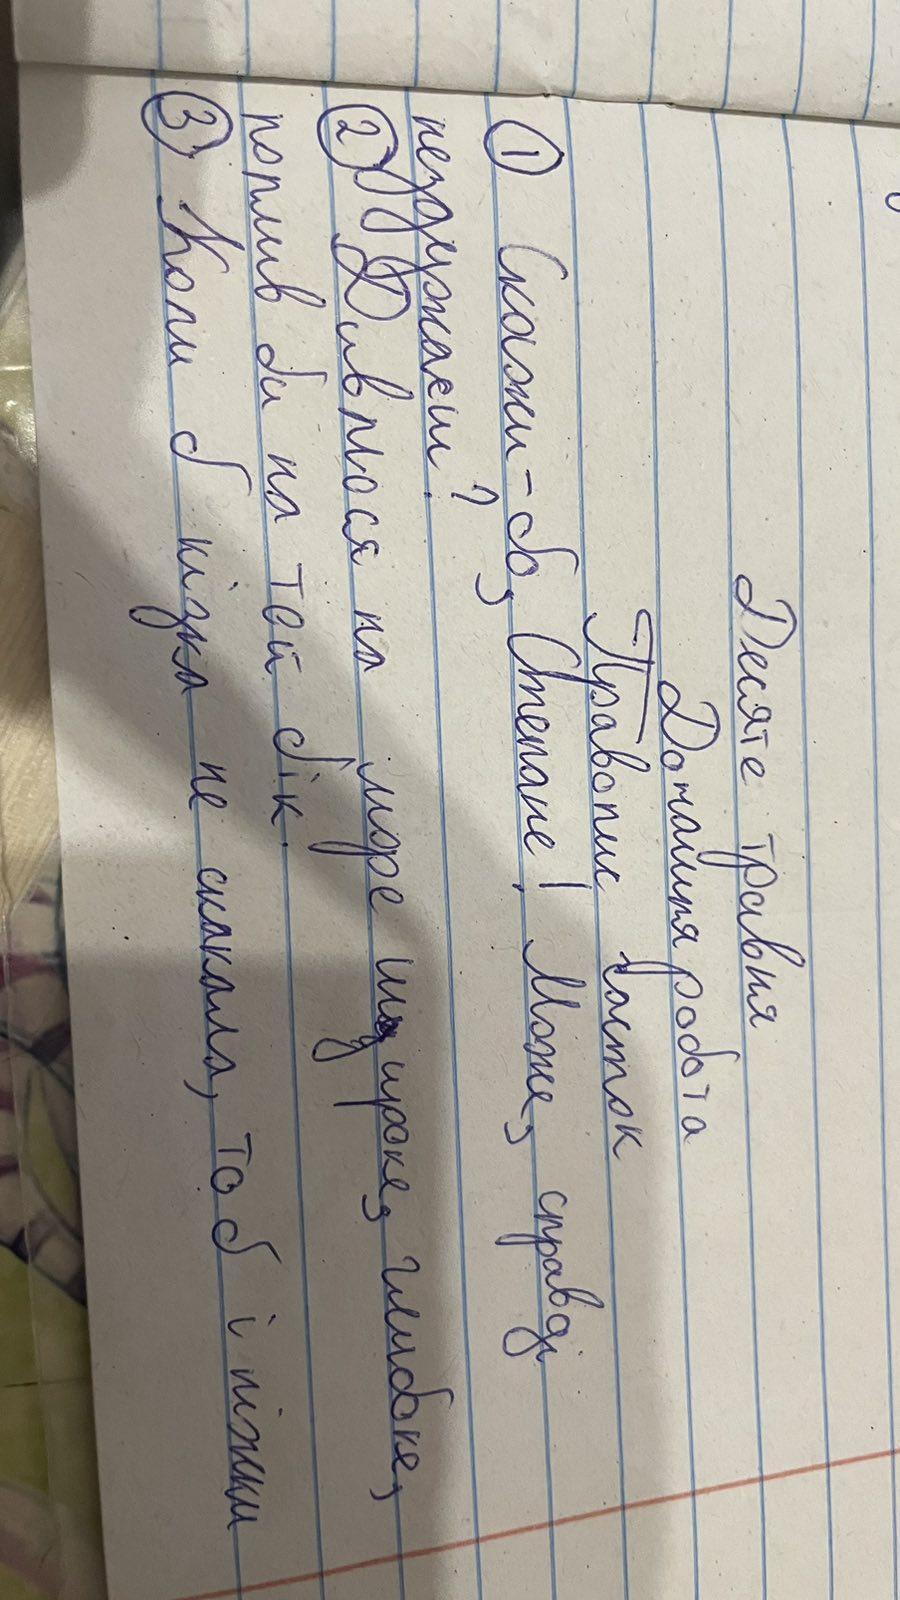 Десяте травня
Домашня робота
Правопис часток
① Скажи-бо, Степане! Може, справді
нездужаєш?
② Дивлюся на море широке, глибоке,
поплив би на той бік.
③ Коли б кізка не скакала, то б і ніжки